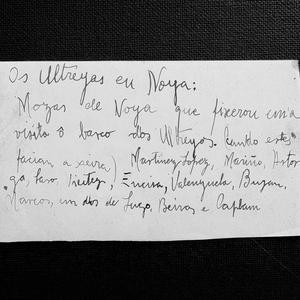 Os Ultreyas en Noya:
Mozas de Noya que fixeron unha
visita ó barco dos Ultreyos. (cando estes
facian a xeira) Martínez-López, Mariño, Astor
ga, Faro, Encisa, Valenzuela, Bujan,
Marcos, un dos de Lugo, Beiras e Caplam